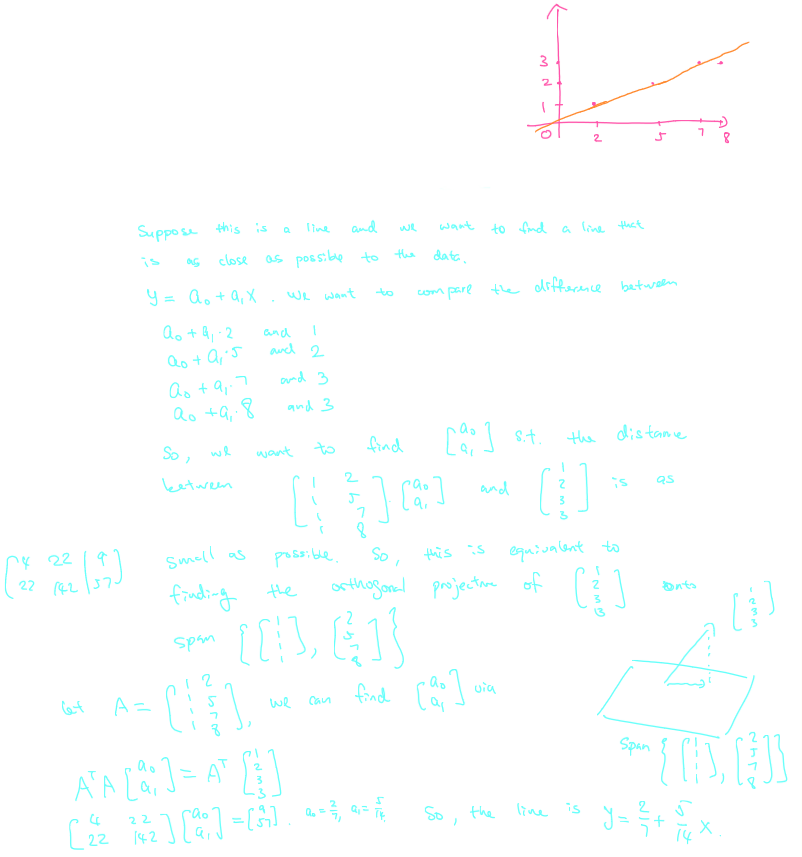 3
2
1
0 2 5 7 8
Suppose this is a line and we want to find a line that
is as close as possible to the data.
y = a₀ + a₁x . We want to compare the difference between
a₀ + a₁·2 and 1
a₀ + a₁·5 and 2
a₀ + a₁·7 and 3
a₀ + a₁·8 and 3
So, we want to find [a₀ a₁] s.t. the distance
between [1 2; 1 5; 1 7; 1 8] [a₀ a₁] and [1 2 3 3] is as
small as possible. So, this is equivalent to
[4 22 | 9; 22 142 | 57]
finding the orthogonal projection of [1 2 3 3] onto
span { [1 1 1 1], [2 5 7 8] }
[1 2 3 3]
let A = [1 2; 1 5; 1 7; 1 8], we can find [a₀ a₁] via
span { [1 1 1 1], [2 5 7 8] }
AᵀA [a₀ a₁] = Aᵀ [1 2 3 3]
[4 22; 22 142] [a₀ a₁] = [9 57]. a₀ = 2/7, a₁ = 5/14. So, the line is y = 2/7 + 5/14 x.